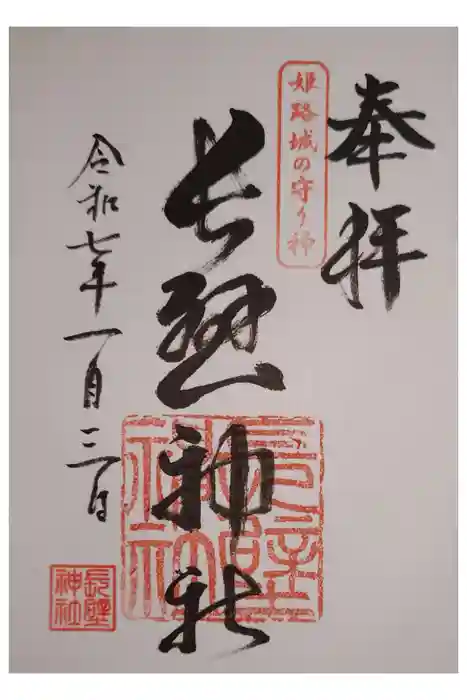 奉拝
姫路城の守り神
長壁神社
長壁神社
令和七年一月三日
長壁神社